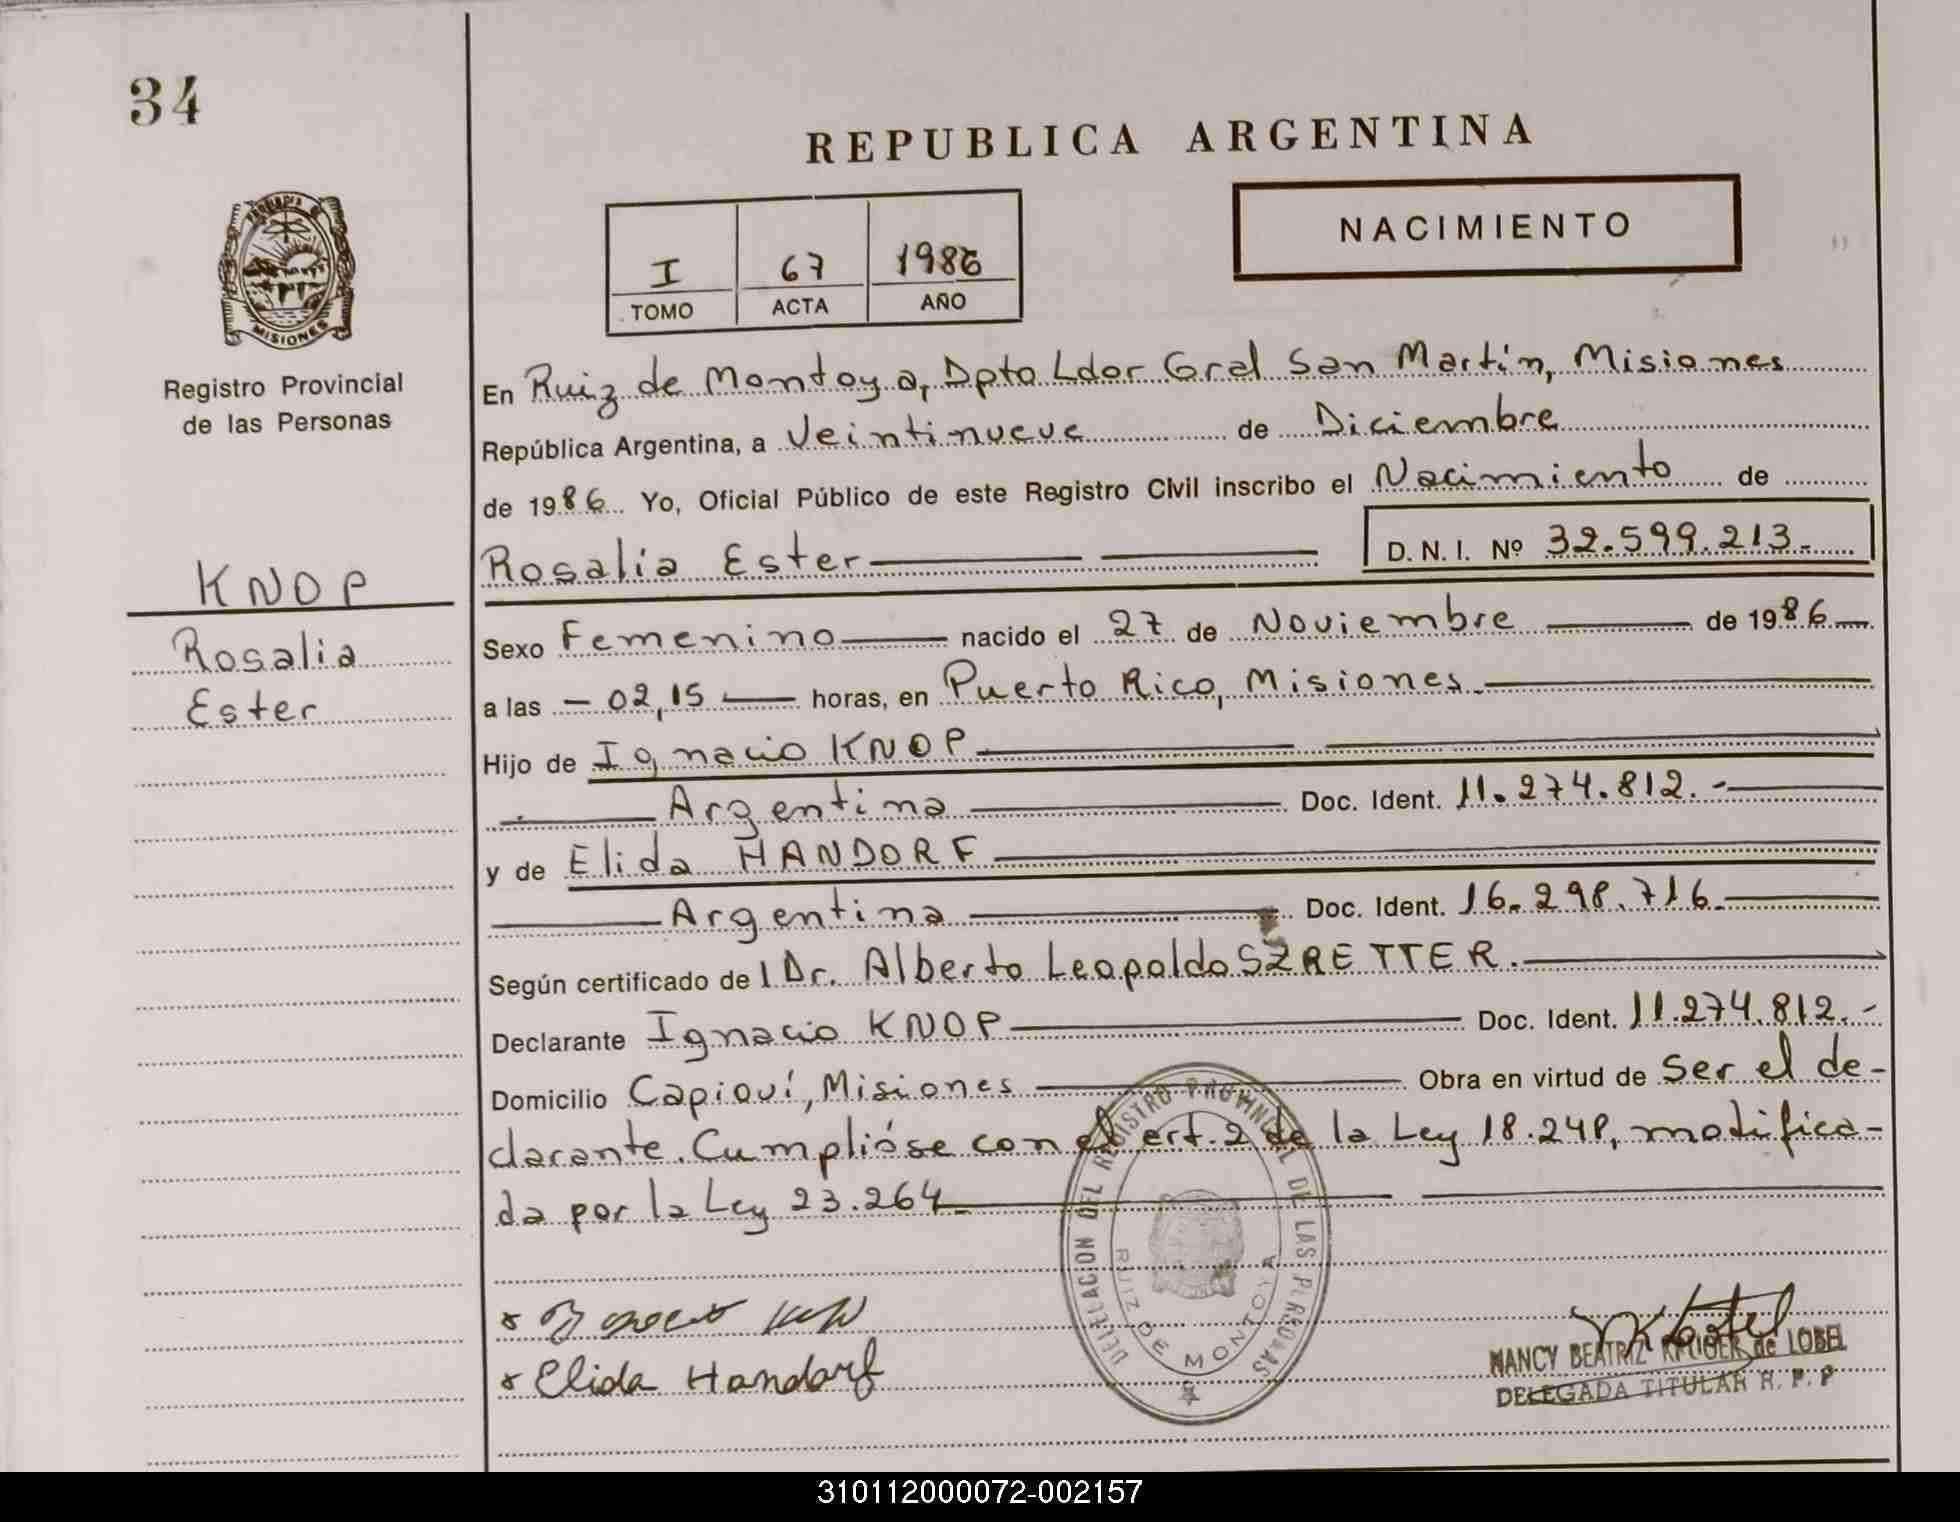 34
REPUBLICA ARGENTINA
NACIMIENTO
I 67 1986
TOMO ACTA AÑO
MISIONES
Registro Provincial
de las Personas
KNOP
Rosalia
Ester
En Ruiz de Montoya, Dpto Ldor Gral San Martín, Misiones
República Argentina, a Veintinueve de Diciembre
de 1986 Yo, Oficial Público de este Registro Civil inscribo el Nacimiento de
Rosalia Ester D. N. I. Nº 32.599.213.-
Sexo Femenino nacido el 27 de Noviembre de 1986
a las - 02,15 horas, en Puerto Rico, Misiones
Hijo de Ignacio KNOP
Argentina Doc. Ident. 11.274.812.-
y de Elida HANDORF
Argentina Doc. Ident. 16.298.716.
Según certificado de l Dr. Alberto Leopoldo SZRETTER.
Declarante Ignacio KNOP Doc. Ident. 11.274.812.-
Domicilio Capioví, Misiones Obra en virtud de Ser el de-
clarante. Cumplióse con el art. 2 de la Ley 18.248, modifica-
da por la Ley 23.264
DELEGACION DEL REGISTRO PROVINCIAL DE LAS PERSONAS
RUIZ DE MONTOYA
x Elida Handorf
NANCY BEATRIZ KRUGER de LOBEL
DELEGADA TITULAR R. P. P
310112000072-002157